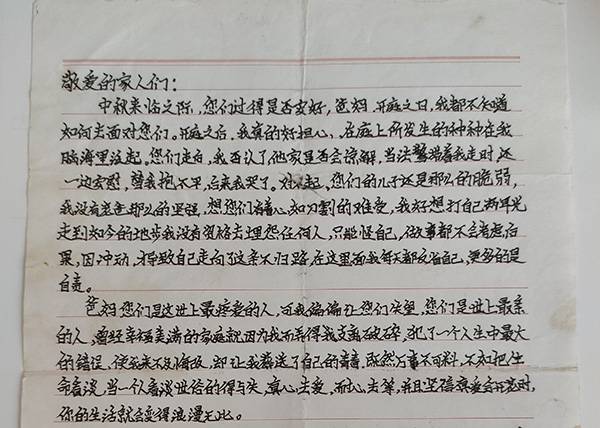 敬爱的家人们：
中秋来临之际，您们过得是否安好，爸妈.开庭之日，我都不知道
如何去面对您们。开庭之后，我真的好担心，在庭上所发生的种种在我
脑海里泛起。您们走后，我否认了他家是否会谅解，当法警带着我走时，还
一边安慰，替我抱不平，后来我哭了。对不起，您们的儿子还是那么的脆弱，
我没有爸爸那么的坚强，想您们有着心如刀割的难受，我好想打自己两耳光
走到如今的地步我没有资格去埋怨任何人，只能怪自己，做事都不会考虑后
果，因冲动，才导致自己走向了这条不归路，在这里面我每天都反省自己，更多的是
自责。
爸妈您们是这世上最疼爱的人，可我偏偏让您们失望，您们是世上最亲
的人，曾经幸福美满的家庭就因为我而弄得我支离破碎，犯了一个人生中最大
的错误，使我来不及悔改，却让我葬送了自己的青春，既然万事不可料，不如把生
命看淡，当一个人看淡世俗的得与失，真心去爱，耐心去等，并且坚信真爱会开花时，
你的生活就会变得浪漫无比。